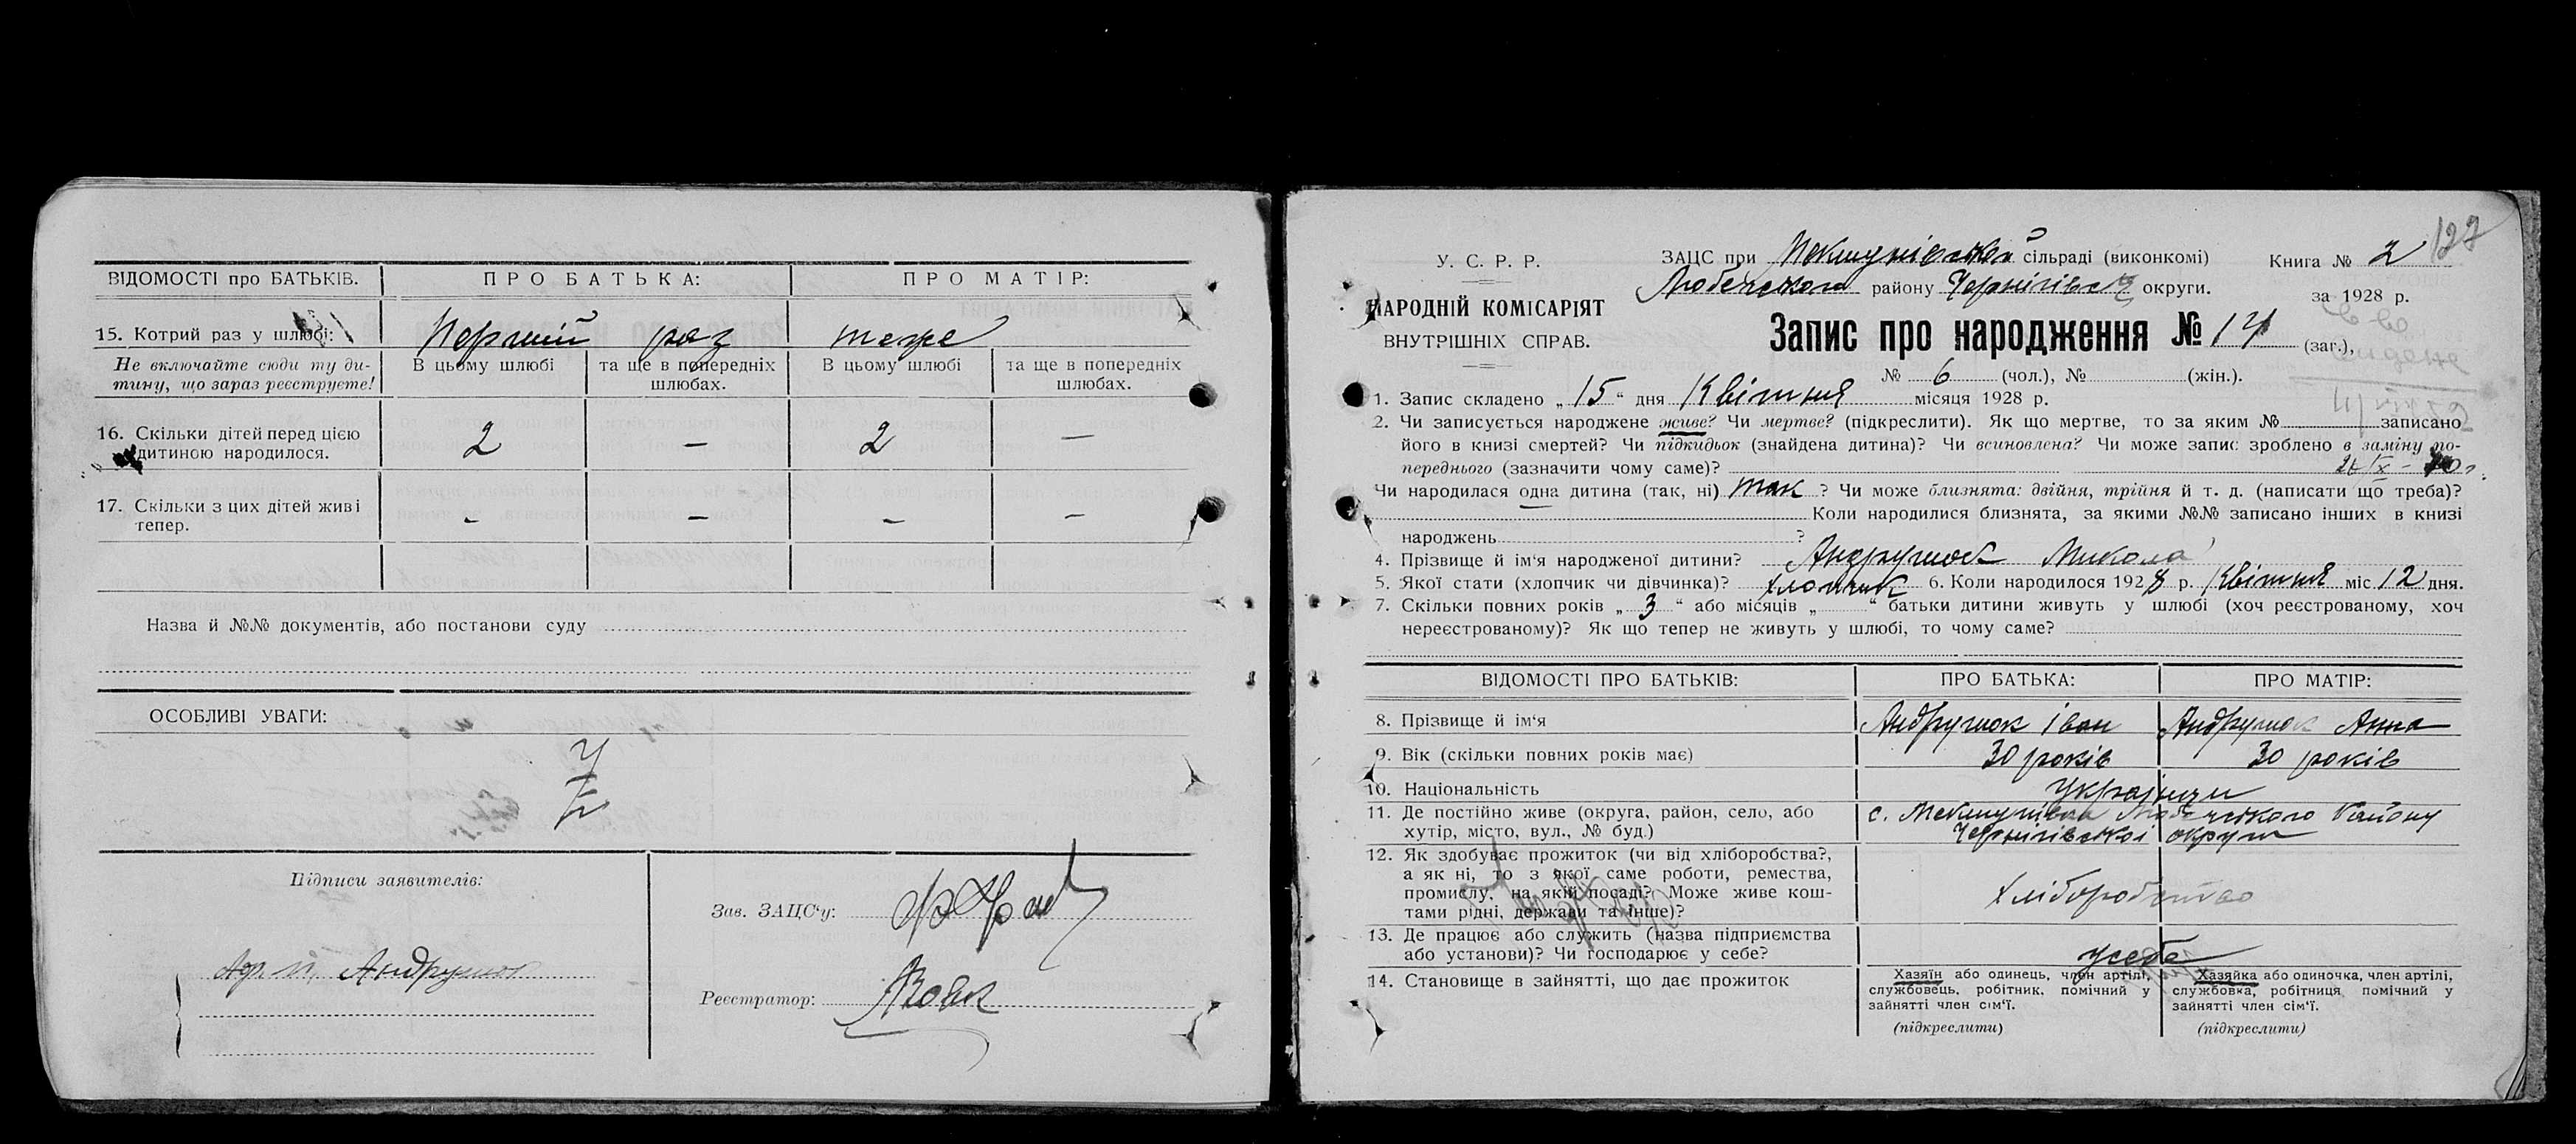 ВІДОМОСТІ про БАТЬКІВ. ПРО БАТЬКА: ПРО МАТІР:
15. Котрий раз у шлюбі: Перший раз теже
Не включайте сюди ту ди-
тину, що зараз реєструєте!
В цьому шлюбі
та ще в попередніх
шлюбах.
В цьому шлюбі
та ще в попередніх
шлюбах.
16. Скільки дітей перед цією
дитиною народилося.
2 — 2 —
17. Скільки з цих дітей живі
тепер.
- — - —
Назва й №№ документів, або постанови суду
ОСОБЛИВІ УВАГИ:
Підписи заявителів:
Андрушок
Зав. ЗАЦС'у:
Реєстратор: Вовк
127
У. С. Р. Р.
НАРОДНІЙ КОМІСАРІЯТ
ВНУТРІШНІХ СПРАВ.
ЗАЦС при сільраді (виконкомі)
Любечского району Чернігівськ округи.
Книга № 2
за 1928 р.
Запис про народження № 14 (заг.),
№ 6 (чол.), № (жін.).
1. Запис складено „ 15 “ дня Квітня місяця 1928 р.
2. Чи записується народжене живе? Чи мертве? (підкреслити). Як що мертве, то за яким № записано
його в книзі смертей? Чи підкидьок (знайдена дитина)? Чи всиновлена? Чи може запис зроблено в заміну по-
переднього (зазначити чому саме)?
Чи народилася одна дитина (так, ні) так ? Чи може близнята: двійня, трійня й т. д. (написати що треба)?
Коли народилися близнята, за якими №№ записано інших в книзі
народжень ?
4. Прізвище й ім'я народженої дитини? Андрушок Микола
5. Якої стати (хлопчик чи дівчинка)? хлопчик 6. Коли народилося 1928 р. Квітня міс 12 дня.
7. Скільки повних років „ 3 “ або місяців „ “ батьки дитини живуть у шлюбі (хоч реєстрованому, хоч
нереєстрованому)? Як що тепер не живуть у шлюбі, то чому саме?
ВІДОМОСТІ ПРО БАТЬКІВ: ПРО БАТЬКА: ПРО МАТІР:
8. Прізвище й ім'я Андрушок Іван Андрушок Анна
9. Вік (скільки повних років має) 30 років 30 років
10. Національність Українци
11. Де постійно живе (округа, район, село, або
хутір, місто, вул., № буд.)
с. Любечского Району
Чернігівскоі округи
12. Як здобуває прожиток (чи від хліборобства?,
а як ні, то з якої саме роботи, ремества,
промислу, на якій посаді? Може живе кош-
тами рідні, держави та інше)?
Хліборобство
13. Де працює або служить (назва підприємства
або установи)? Чи господарює у себе?
усебе
14. Становище в зайнятті, що дає прожиток
Хазяїн або одинець, член артілі,
службовець, робітник, помічний у
зайнятті член сім'ї.
(підкреслити)
Хазяйка або одиночка, член артілі,
службовка, робітниця помічний у
зайнятті член сім'ї.
(підкреслити)